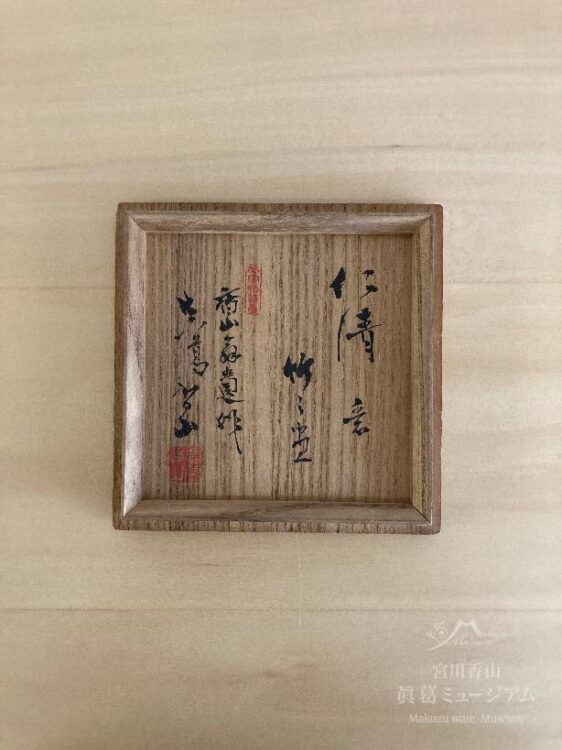 仁清意
竹之画
香山翁遺作
真葛香山
宮川香山
眞葛ミュージアム
Makuzu ware Museum